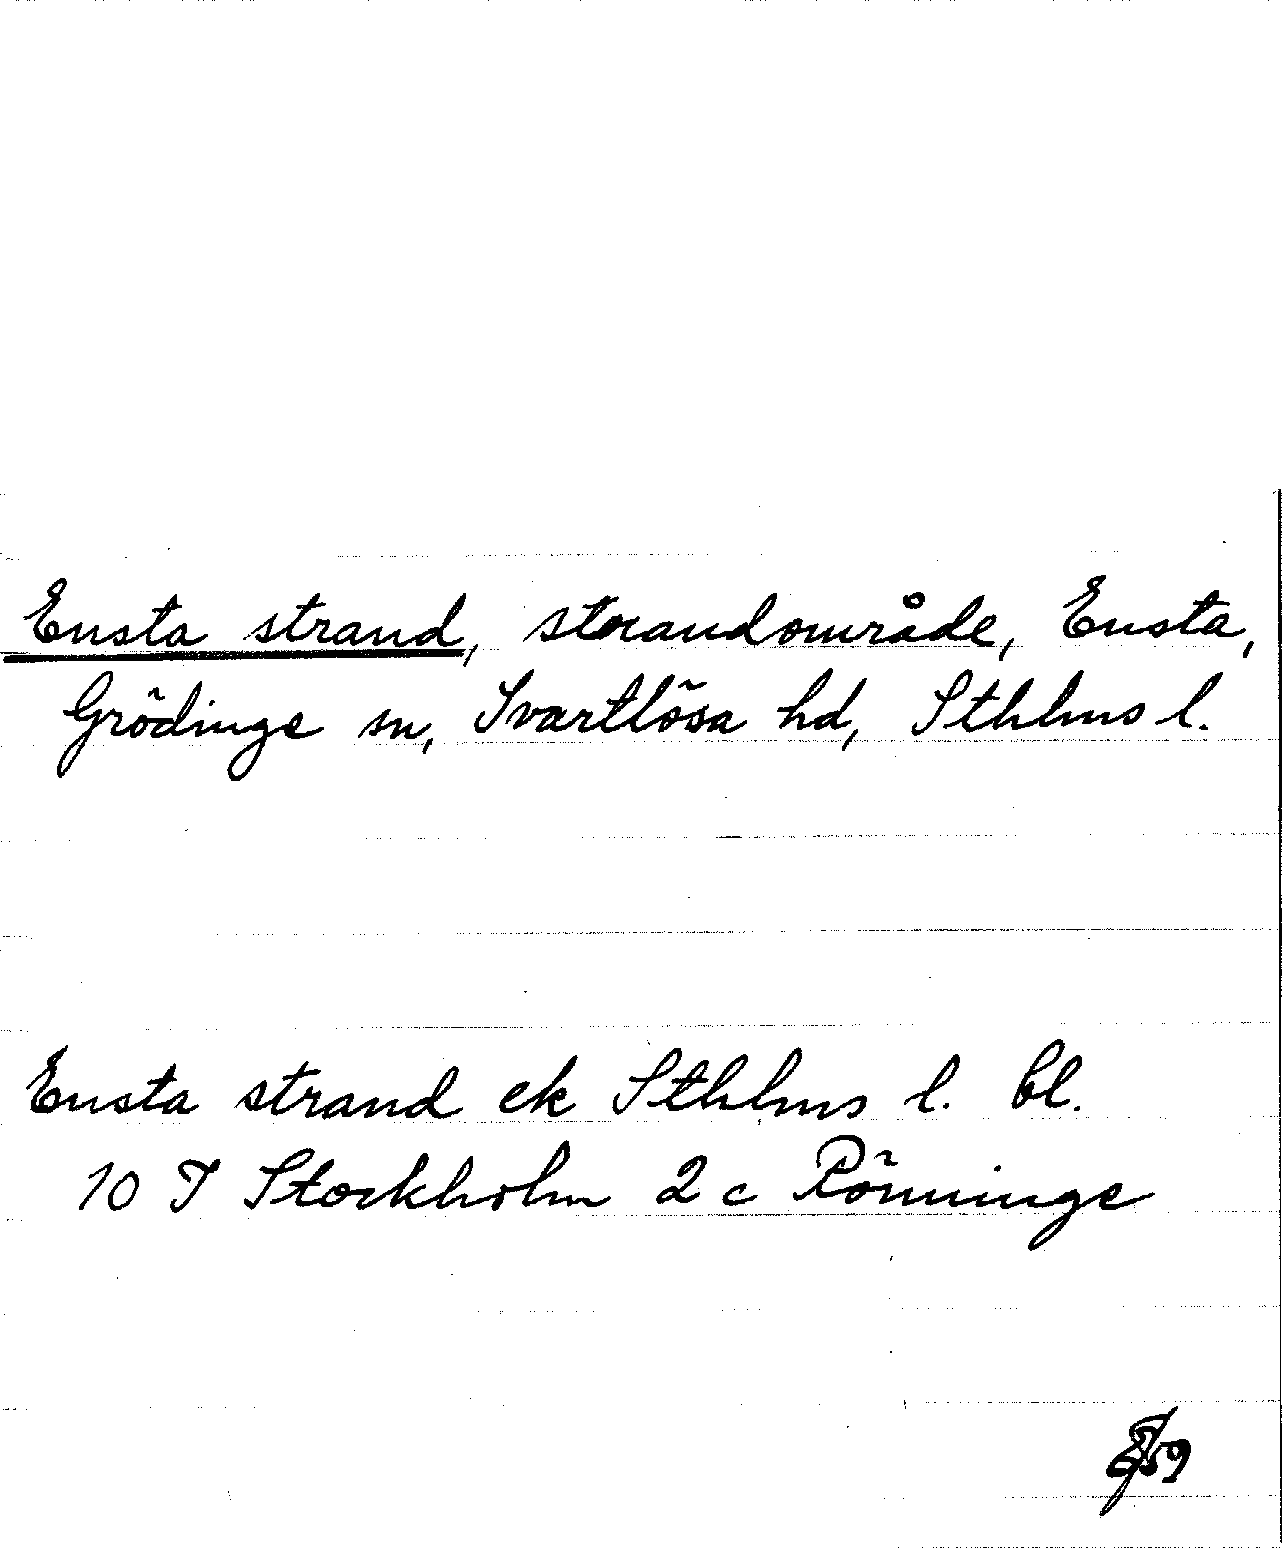 Ensta strand, strandområde, Ensta,
Grödinge sn, Svartlösa hd, Sthlms l.
Ensta strand ek Sthlms l. bl.
10 I Stockholm 2 c Rönninge
59